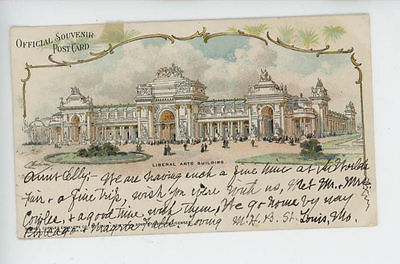 OFFICIAL SOUVENIR
POST CARD
LIBERAL ARTS BUILDING.
Aunt Ella,- We are having such a fine time at the World's
Fair, & a fine trip, wish you were with us, Met Mr. & Mrs.
Cowles, & a good time with them, We go home by way
Chicago & Niagara Falls. Loving M.H.B. St. Louis, Mo.